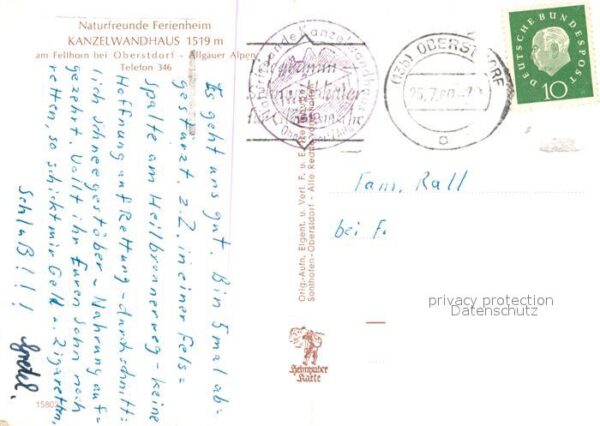 Naturfreunde Ferienheim
KANZELWANDHAUS 1519 m
am Fellhorn bei Oberstdorf - Allgäuer Alpen
Telefon 346
Es geht uns gut. Bin 5 mal ab=
gestürzt. z.Z. in einer Fels=
spalte am Heilbronnerweg - keine
Hoffnung auf Rettung - durchschnitt=
lich Schneegestöber - Nahrung auf-
gezehrt. Wollt ihr Euren Sohn noch
retten, so schickt mir Geld u. Zigaretten,
Schluß!!!
Gretel.
1580
Orig.-Aufn. Eigent. u. Verl. F. u. E.
Sonthofen-Oberstdorf - Alle Rechte
Heimhuber
Karte
Naturfreunde Kanzelwandhaus
(13b) OBERSTDORF
25.7.60
a
DEUTSCHE BUNDESPOST
10
Fam. Rall
bei F.
privacy protection
Datenschutz